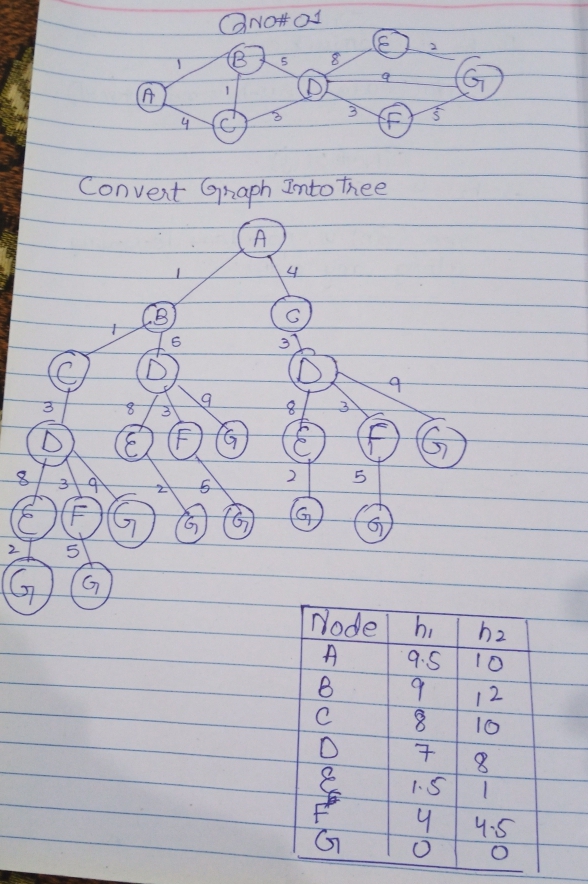 QNO#01
1 B 5 8 E 2
A 1 D 9 G
4 C 3 3 F 5
Convert Graph Into Tree
A
1 4
B C
1 5 3
C D D 9
3 8 3 9 8 3
D E F G E F G
8 3 9 2 5 2 5
E F G G G G G
2 5
G G
Node h1 h2
A 9.5 10
B 9 12
C 8 10
D 7 8
E 1.5 1
F 4 4.5
G 0 0